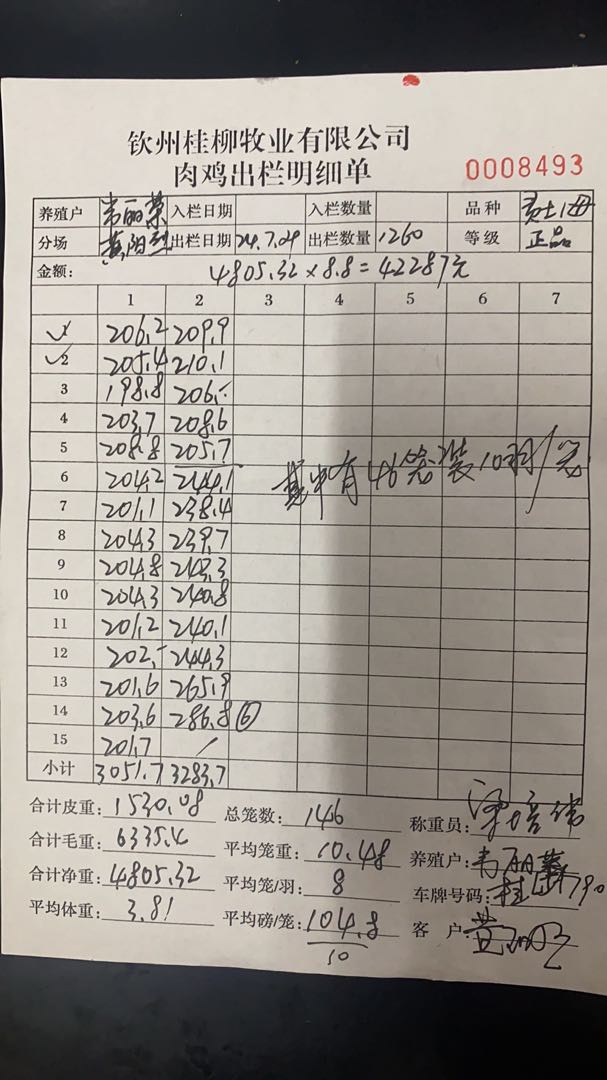 钦州桂柳牧业有限公司
肉鸡出栏明细单
0008493
养殖户 韦丽荣 入栏日期 入栏数量 品种
分场 出栏日期 24.7.29 出栏数量 1260 等级 正品
金额: 4805.32×8.8=42287元
1 2 3 4 5 6 7
✓1 206.2 209.9
✓2 205.4 210.1
3 198.8 206.-
4 203.7 208.6
5 208.8 205.7
6 204.2 244.1
7 201.1 238.4
8 204.3 239.7
9 204.8 243.3
10 204.3 240.8
11 201.2 240.1
12 202.- 244.3
13 201.6 265.9
14 203.6 286.8 ⑥
15 201.7 /
小计 3051.7 3283.7
其中有46笼装10羽/笼
合计皮重: 1530.08 总笼数: 146 称重员:
合计毛重: 6335.4 平均笼重: 10.48 养殖户: 韦丽荣
合计净重: 4805.32 平均笼/羽: 8 车牌号码:
平均体重: 3.81 平均磅/笼: 104.8 客户
10